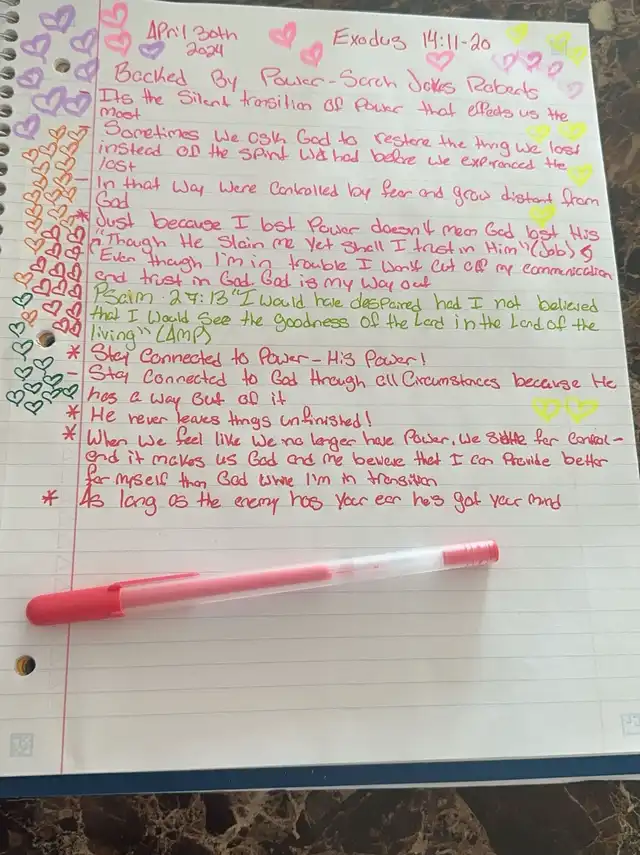 April 30th
2024
Exodus 14:11-20
Backed By Power - Sarah Jakes Roberts
- Its the Silent transition of Power that effects us the
most
- Sometimes we ask God to restore the thing we lost
instead of the spirit we had before we experianced the
lost
- In that way were controlled by fear and grow distant from
God
* Just because I lost Power doesn't mean God lost His
"Though He Slain me yet shall I trust in Him" (Job)
Even though I'm in trouble I won't cut off my communication
and trust in God. God is my way out
Psalm 27:13 "I would have despaired had I not believed
that I would see the goodness of the Lord in the Land of the
living" (AMP)
* Stay Connected to Power - His Power!
- Stay connected to God through all circumstances because He
has a way out of it
* He never leaves things unfinished!
* When we feel like we no longer have Power, we settle for control -
and it makes us God and me beware that I can Provide better
for myself than God while I'm in transition
* As long as the enemy has your ear he's got your mind